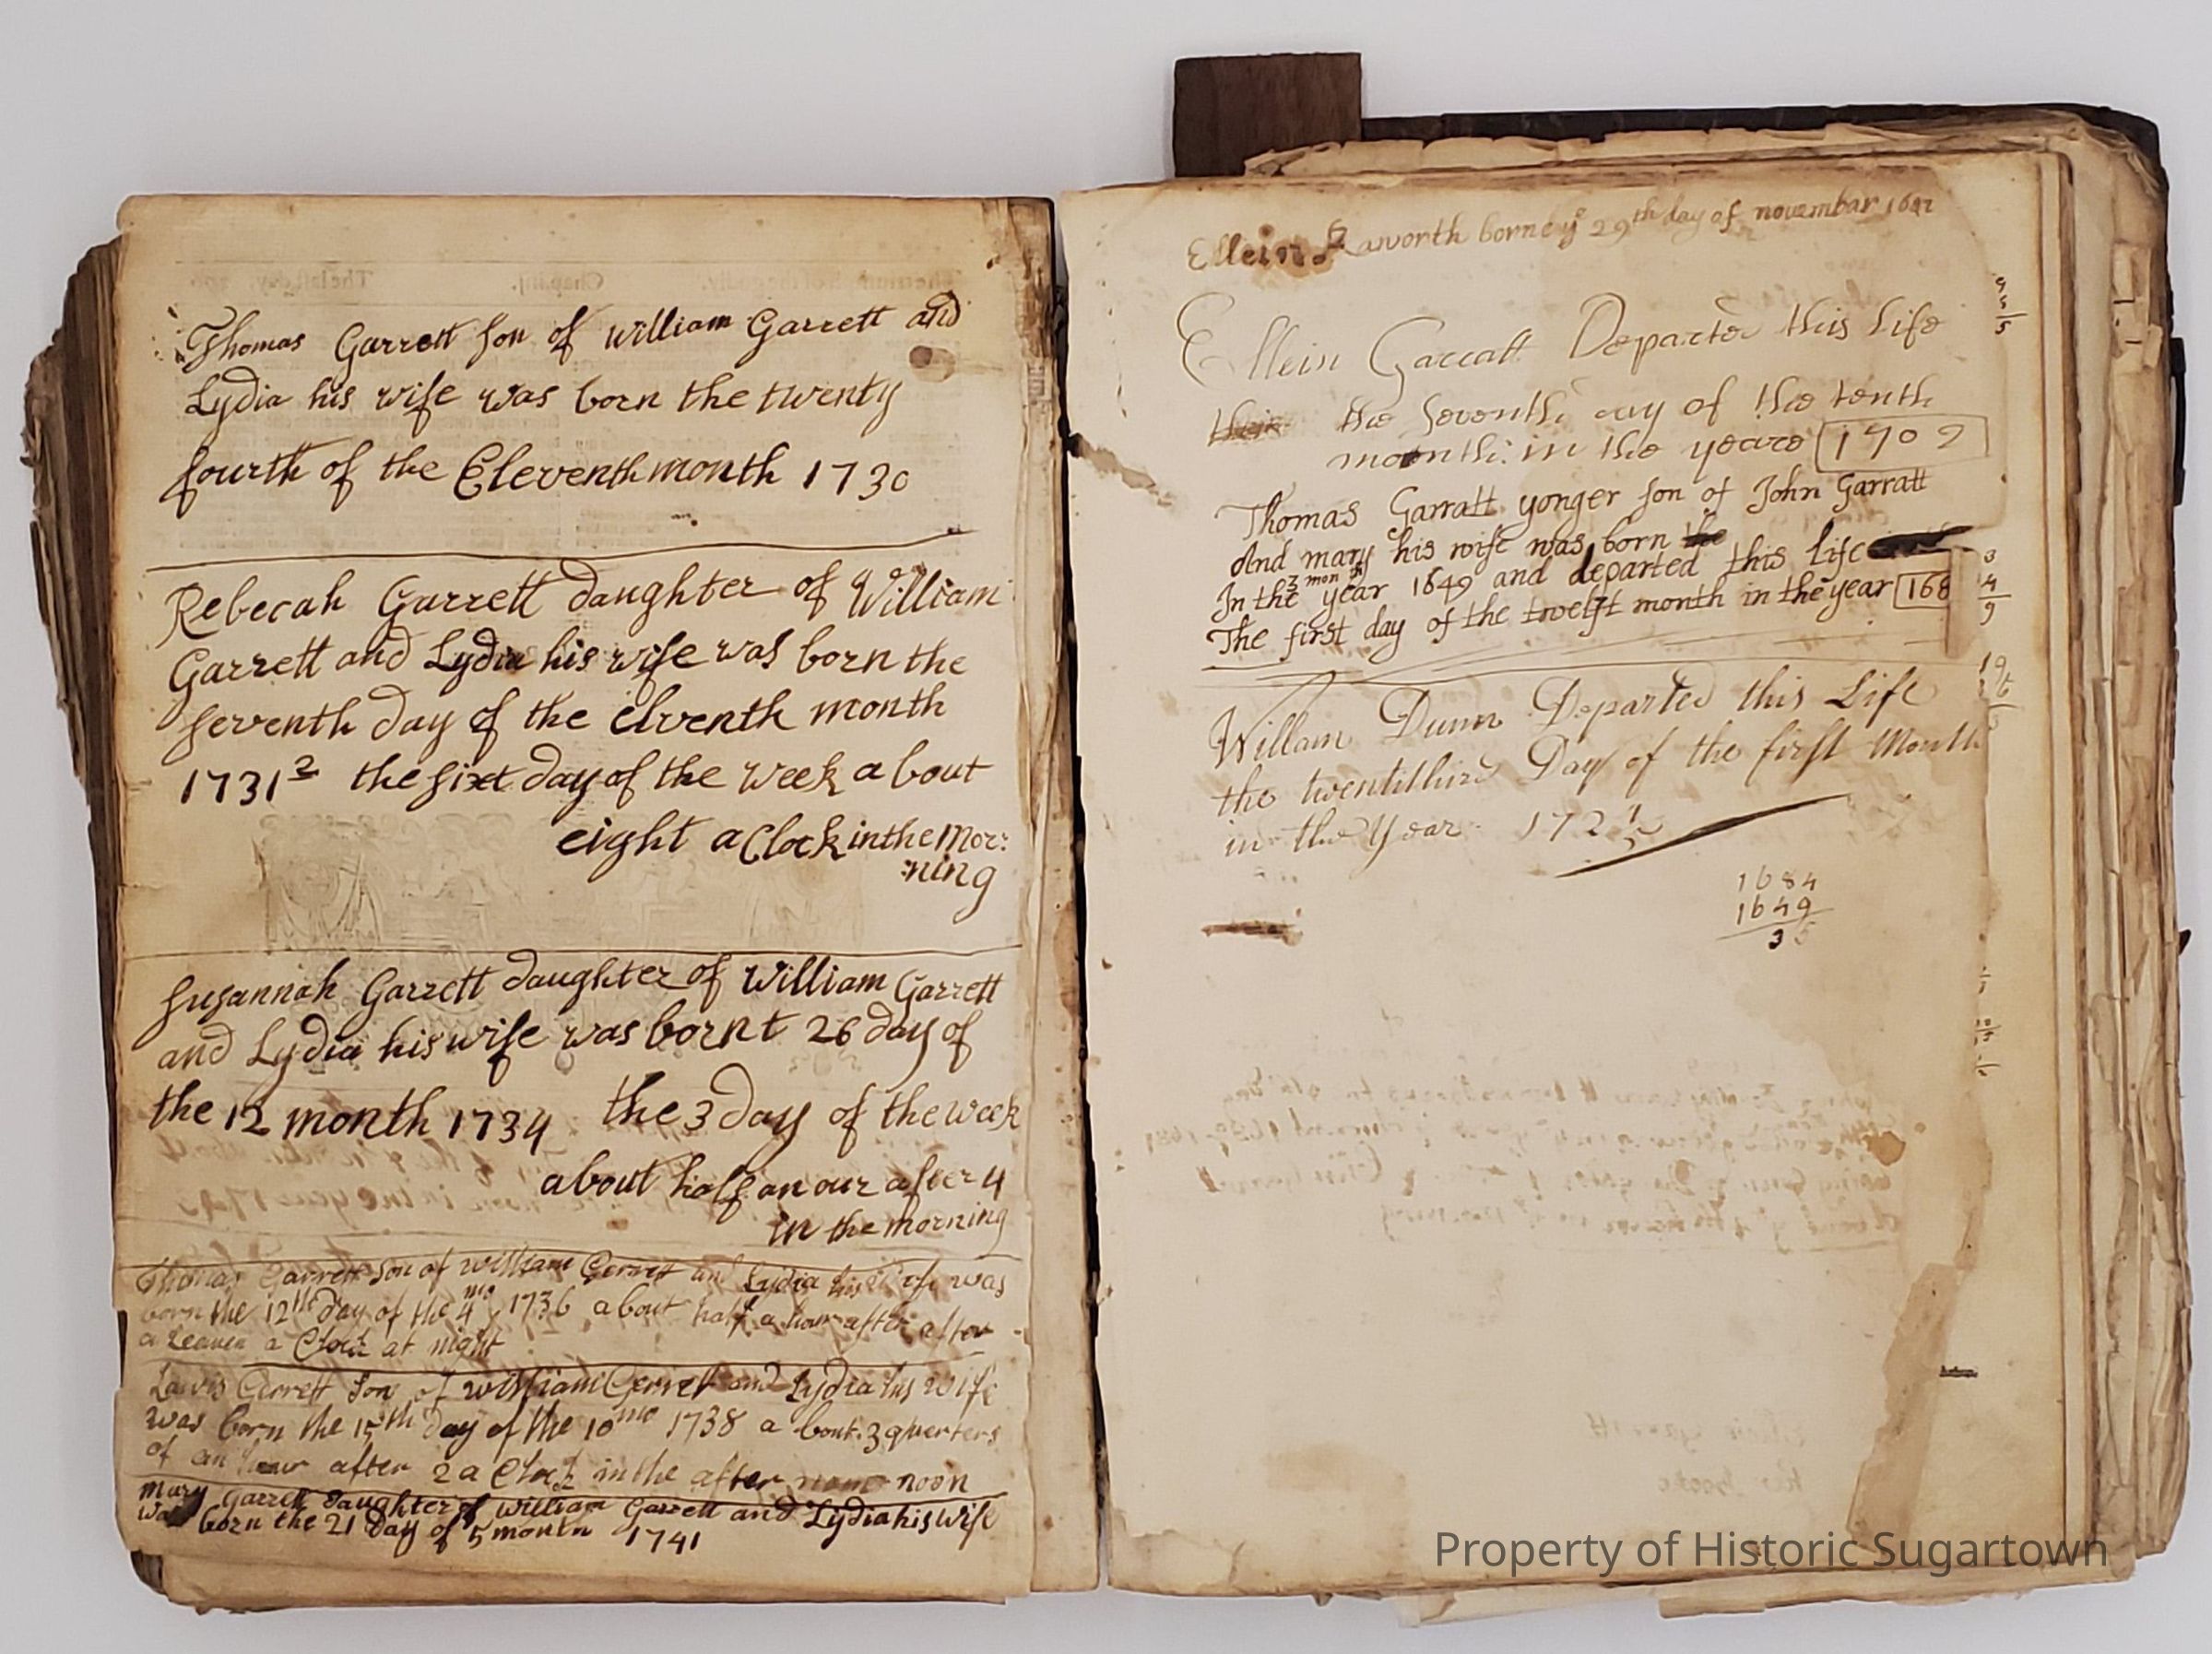 Thomas Garrett son of william Garrett and
Lydia his wife was born the twenty
fourth of the Eleventh month 1730
Rebecah Garrett daughter of William
Garrett and Lydia his wife was born the
seventh day of the elventh month
1731 2 the sixt day of the week a bout
eight a Clock in the Mor:
:ning
Susannah Garrett daughter of William Garrett
and Lydia his wife was born t 26 day of
the 12 month 1734 the 3 day of the week
about half an our after 4
in the morning
Thomas Garrett son of william Gerrett and Lydia his wife was
born the 12th day of the 4 mo 1736 about half a hour after after
a Leaven a Clock at night
Lewis Gerrett son of william Gerrett and Lydia his wife
was born the 15th day of the 10mo 1738 a bout 3 querters
of an hour after 2 a Clock in the after noon
mary Garrett daughter of william Garrett and Lydia his wife
was born the 21 day of 5 month 1741
Ellein Haworth borne ye 29th day of novembar
Ellein Garratt Departed this Life
the seventh day of the tenth
month in the yeare 1709
Thomas Garratt yonger son of John Garratt
And mary his wife was born the
departed this life
In the 2 mon year 1649 and
The first day of the twelft month in the year 168
William Dunn Departed this Life
the twentithird Day of the first Month
in the Year 172 1/2
1684
1649
35
3
4
9
Property of Historic Sugartown